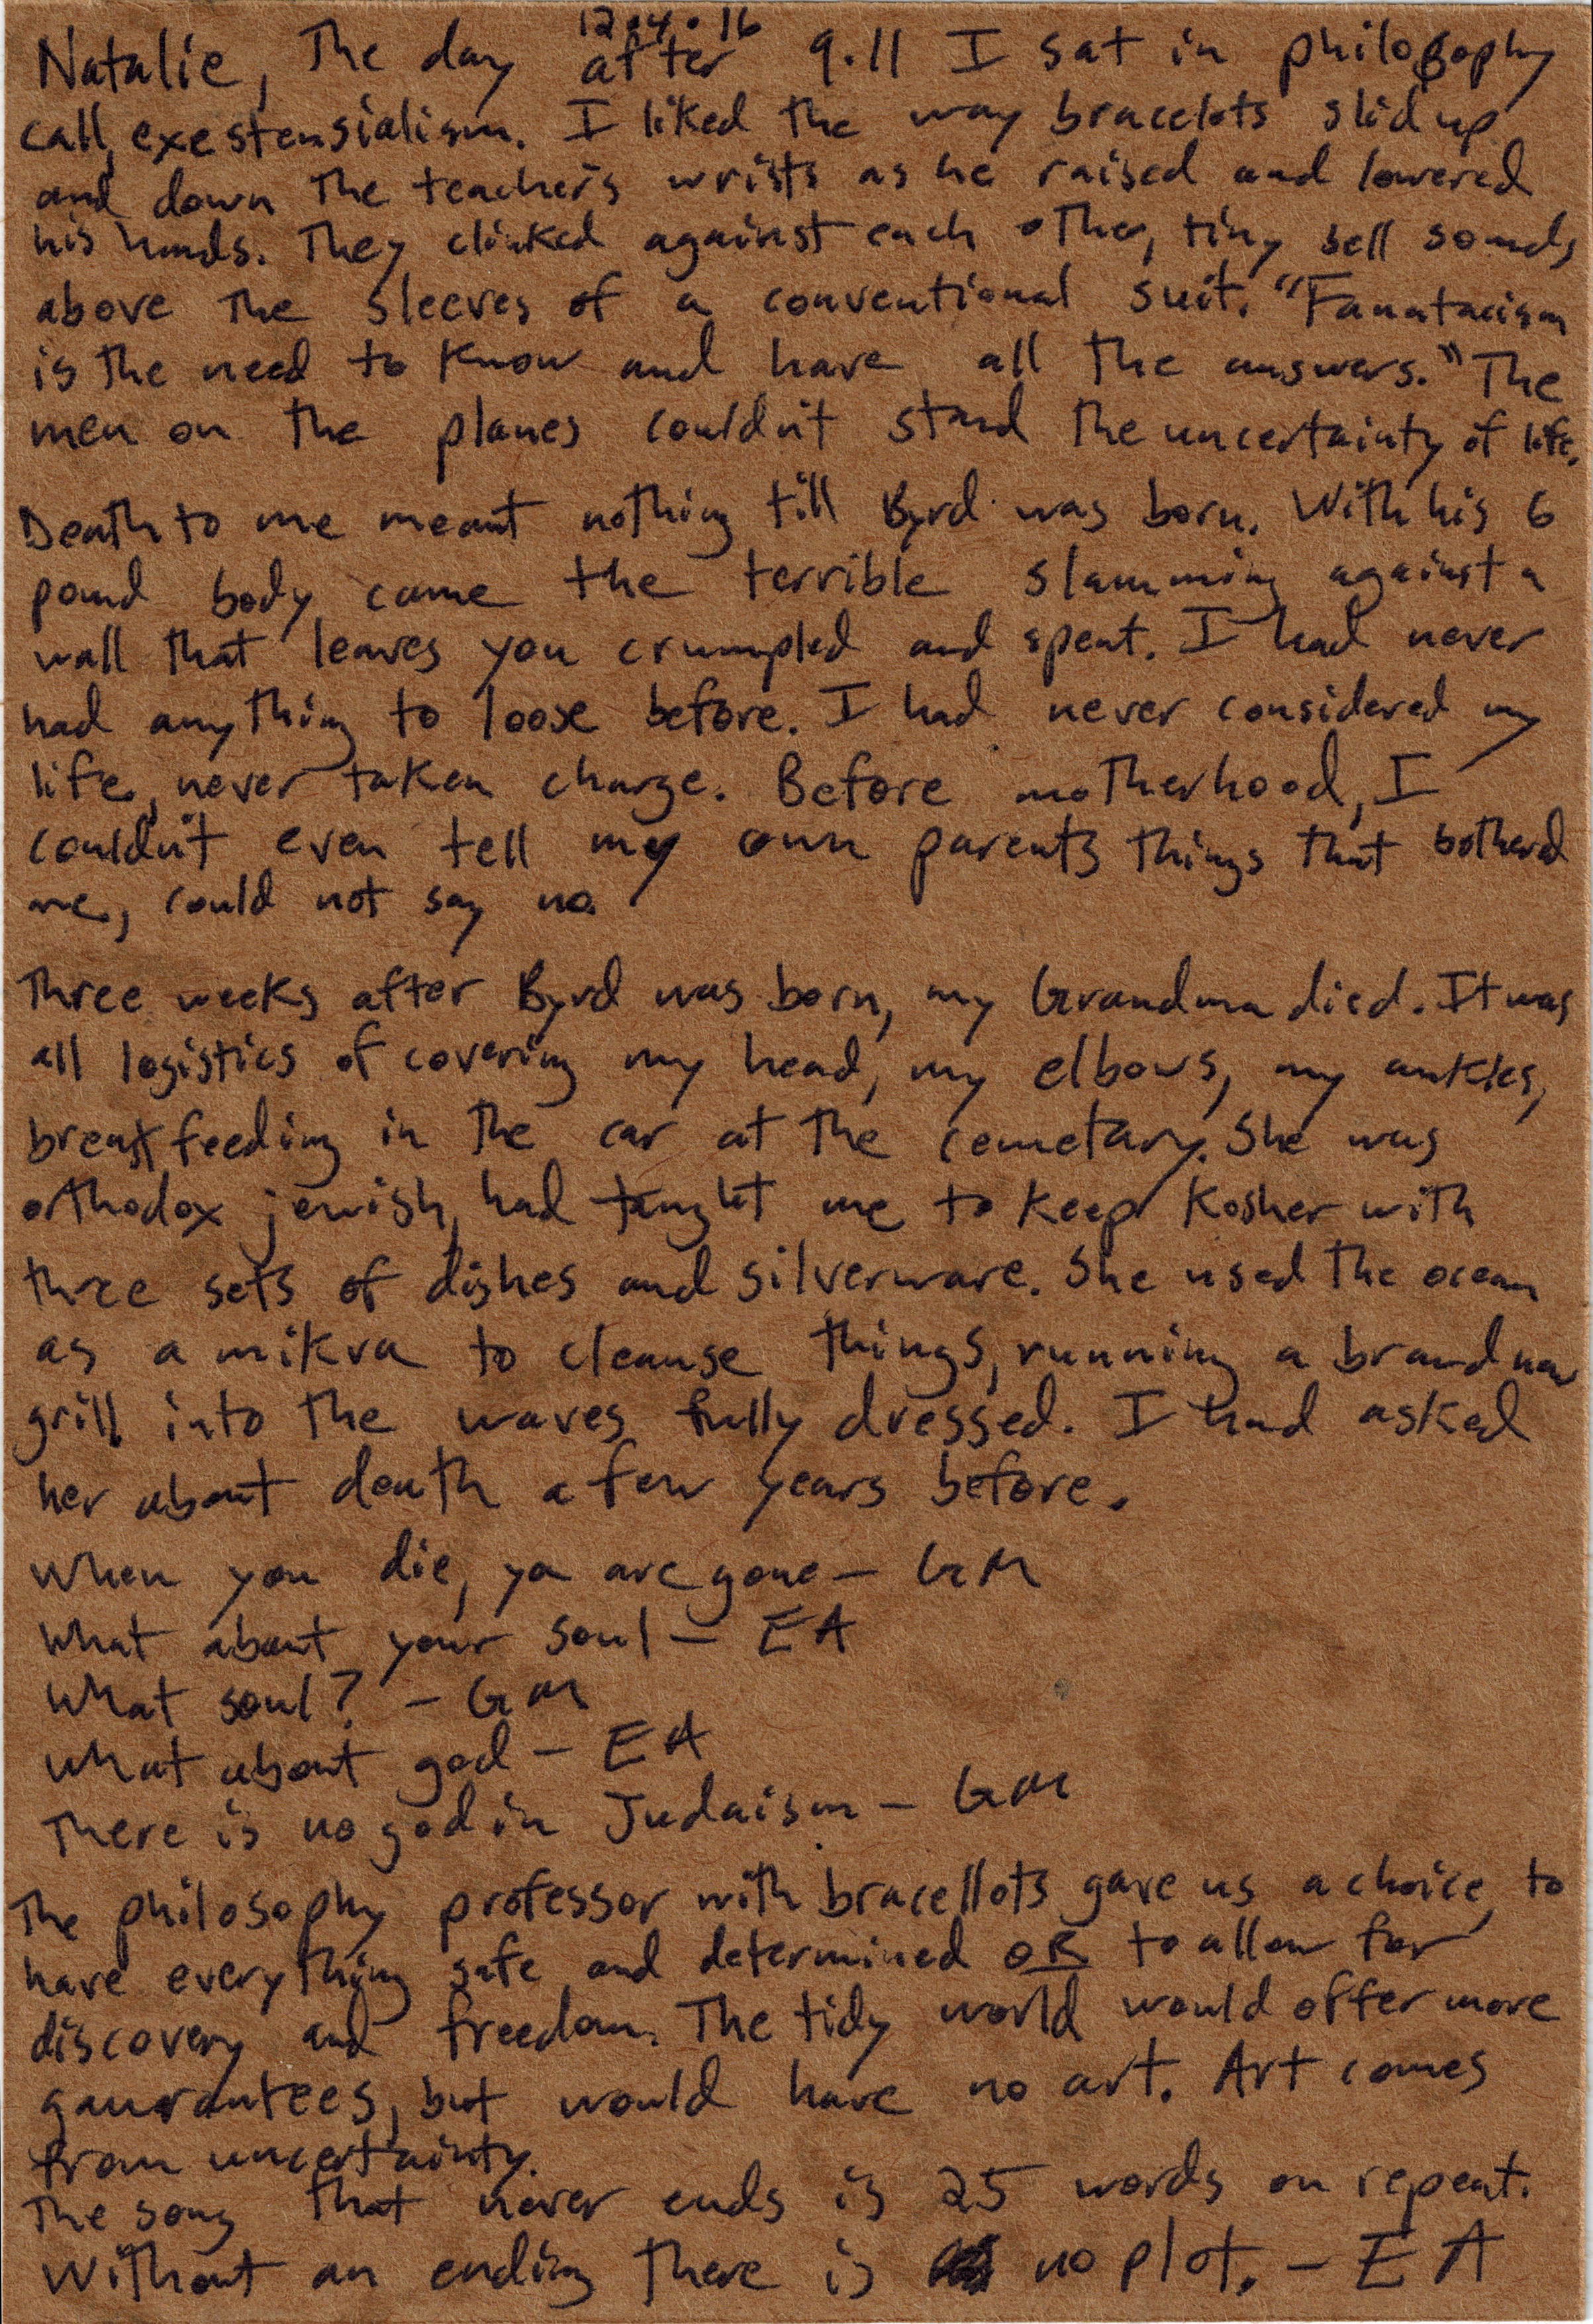 12.4.16
Natalie, The day after 9.11 I sat in philosophy
call, exestensialism. I liked the way bracelots slid up
and down the teacher's wrists as he raised and lowered
his hands. They clinked against each other, tiny bell sounds
above the sleeves of a conventional suit. "Fanatacism
is the need to know and have all the answers." The
men on the planes couldn't stand the uncertainty of life.
Death to me meant nothing till Byrd was born. With his 6
pound body came the terrible slamming against a
wall that leaves you crumpled and spent. I had never
had anything to loose before. I had never considered my
life, never taken charge. Before motherhood, I
couldn't even tell my own parents things that botherd
me, could not say no.
Three weeks after Byrd was born, my Grandma died. It was
all logistics of covering my head, my elbows, my ankles,
breastfeeding in the car at the cemetary. She was
orthodox jewish, had taught me to keep Kosher with
three sets of dishes and silverware. She used the ocean
as a mikva to cleanse things, running a brand new
grill into the waves fully dressed. I had asked
her about death a few years before.
When you die, ya are gone - GM
What about your soul - EA
What soul? - GM
What about god - EA
There is no god in Judaism - GM
The philosophy professor with bracellots gave us a choice, to
have everything safe and determined OR to allow for
discovery and freedom. The tidy world would offer more
gaurantees, but would have no art. Art comes
from uncertainty.
The song that never ends is 25 words on repeat.
Without an ending there is no plot. - EA